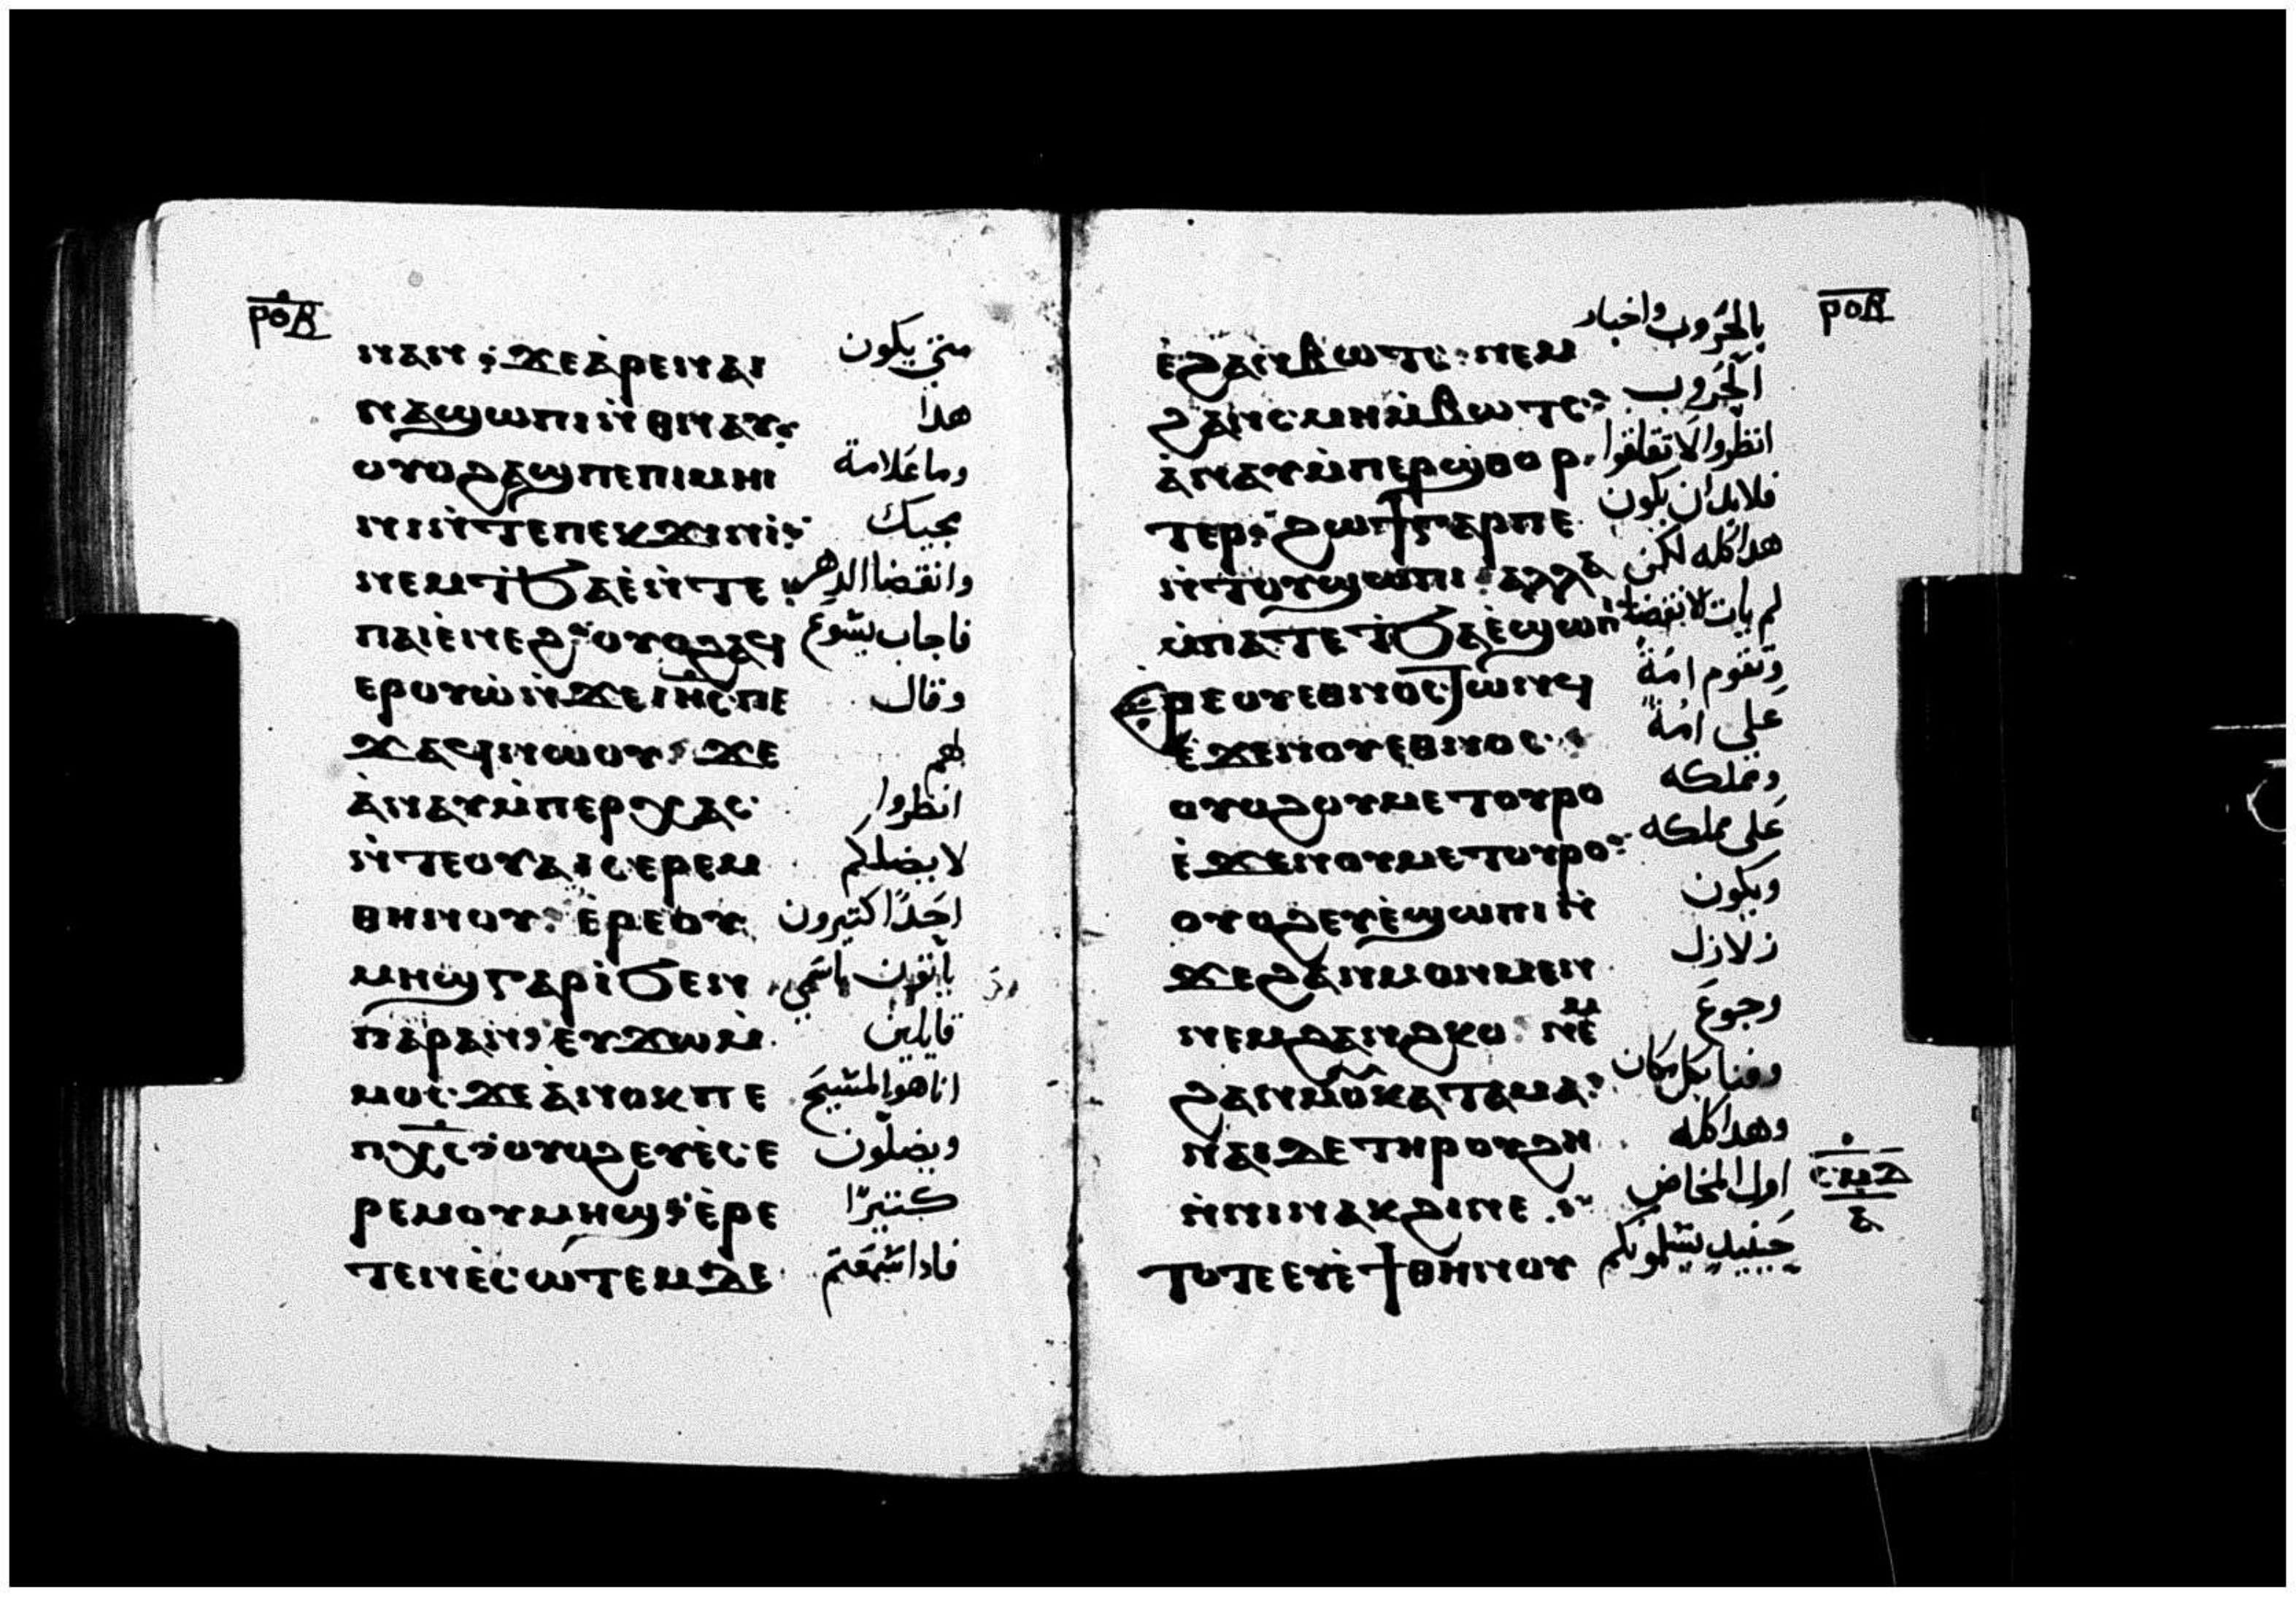 ⲣⲟⲃ
ⲛⲁⲛ ϫⲉ ⲁ̀ⲣⲉ ⲛⲁⲓ متى يكون
ⲛⲁϣⲱⲡⲓ ⲛ̀ⲑⲛⲁⲩ هدا
ⲟⲩⲟϩ ⲁϣ ⲡⲉ ⲡⲓⲙⲏⲓ وما علامة
ⲛⲓ ⲛ̀ⲧⲉ ⲡⲉⲕϫⲓⲛⲓ̀ مجيك
ⲛⲉⲙ ϯϧⲁⲉ̀ ⲛ̀ⲧⲉ وانقضا الدهر
ⲡⲁⲓⲉ̀ⲛⲉϩ ⲟⲩⲟϩ ⲁϥ فاجاب يسوع
ⲉⲣⲟⲩⲱ̀ ⲛ̀ϫⲉ ⲓⲏⲥ ⲡⲉ وقال
ϫⲁϥ ⲛⲱⲟⲩ ϫⲉ لهم
ⲁ̀ⲛⲁⲩ ⲙ̀ⲡⲉⲣⲭⲁⲥ انظروا
ⲛ̀ⲧⲉ ⲟⲩⲁⲓ ⲥⲉⲣⲉⲙ لا يضلكم
ⲑⲏⲛⲟⲩ ⲉ̀ⲣⲉ ⲟⲩ احدًا كتيرون
ⲙⲏϣ ⲅⲁⲣ ⲓ̀ ϧⲉⲛ ياتون باسمي
ⲡⲁⲣⲁⲛ ⲉⲩϫⲱ ⲙ̀ قايلين
ⲙⲟⲥ ϫⲉ ⲁ̀ⲛⲟⲕ ⲡⲉ انا هو المسيح
ⲡⲭⲥ ⲟⲩⲟϩ ⲉⲩⲉ̀ⲥⲉ ويضلون
ⲣⲉⲙ ⲟⲩⲙⲏϣ ⲉ̀ⲣⲉ كتيرًا
ⲧⲉⲛⲉ̀ⲥⲱⲧⲉⲙ ⲇⲉ فادا سمعتم
ⲣⲟⲃ
ⲉ̀ϩⲁⲛⲃⲱⲧⲥ ⲛⲉⲙ بالحروب واخبار
ϩⲁⲛⲥⲙⲏ ⲙ̀ⲃⲱⲧⲥ الحروب
ⲁ̀ⲛⲁⲩ ⲙ̀ⲡⲉⲣϣⲑⲟⲣ انظروا لا تقلقوا
ⲧⲉⲣ ϩⲱϯ ⲅⲁⲣ ⲡⲉ فلابد ان يكون
ⲛ̀ⲧⲟⲩϣⲱⲡⲓ ⲁⲗⲗⲁ هدا كله لكن
ⲙ̀ⲡⲁⲧⲉ ϯϧⲁⲉ̀ ϣⲱⲡⲓ لم يات الانقضا
ⲣⲉ ⲟⲩⲉⲑⲛⲟⲥ ⲧⲱⲛϥ وتقوم امة
ⲉ̀ϫⲉⲛ ⲟⲩⲉⲑⲛⲟⲥ على امة
ⲟⲩⲟϩ ⲟⲩⲙⲉⲧⲟⲩⲣⲟ ومملكه
ⲉ̀ϫⲉⲛ ⲟⲩⲙⲉⲧⲟⲩⲣⲟ على مملكه
ⲟⲩⲟϩ ⲉⲩⲉ̀ϣⲱⲡⲓ ⲛ̀ ويكون
ϫⲉ ϩⲁⲛⲙⲟⲛⲙⲉⲛ زلازل
ⲛⲉⲙ ϩⲁⲛϩⲕⲟ ⲛⲉⲙ وجوع
ϩⲁⲛⲙⲟⲩ ⲕⲁⲧⲁ ⲙⲁ وفنا بكل مكان
ⲛⲁⲓ ⲇⲉ ⲧⲏⲣⲟⲩ ϩⲏ وهدا كله
ⲛ̀ⲛⲓⲛⲁⲕϩⲓ ⲛⲉ اول المخاض
ⲥⲙⲇ
ⲇ
ⲧⲟⲧⲉ ⲉⲩⲉ̀ϯ ⲑⲏⲛⲟⲩ حينيد يسلمونكم